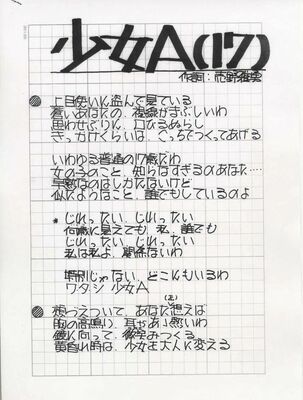 少女A(17)
作詞:売野雅勇
上目使いに盗んで見ている
蒼いあなたの、視線がまぶしいわ
思わせぶりに、口びるぬらし
きっかけぐらいは、こっちでつくってあげる
いわゆる普通の17歳だわ
女の子のこと、知らなすぎるのあなた……
早熟なのはしかたないけど
似たようなこと、誰でもしているのよ
* じれったい、じれったい
何歳に見えても、私、誰でも
じれったい、じれったい
私は私よ、関係ないわ
特別じゃない、どこにもいるわ
ワタシ 少女A
(を)
頬づえついて、あなた想えば
胸の高鳴り、耳が熱いわ
鏡に向って、微笑みつくる
黄昏れ時は、少女を大人に変える